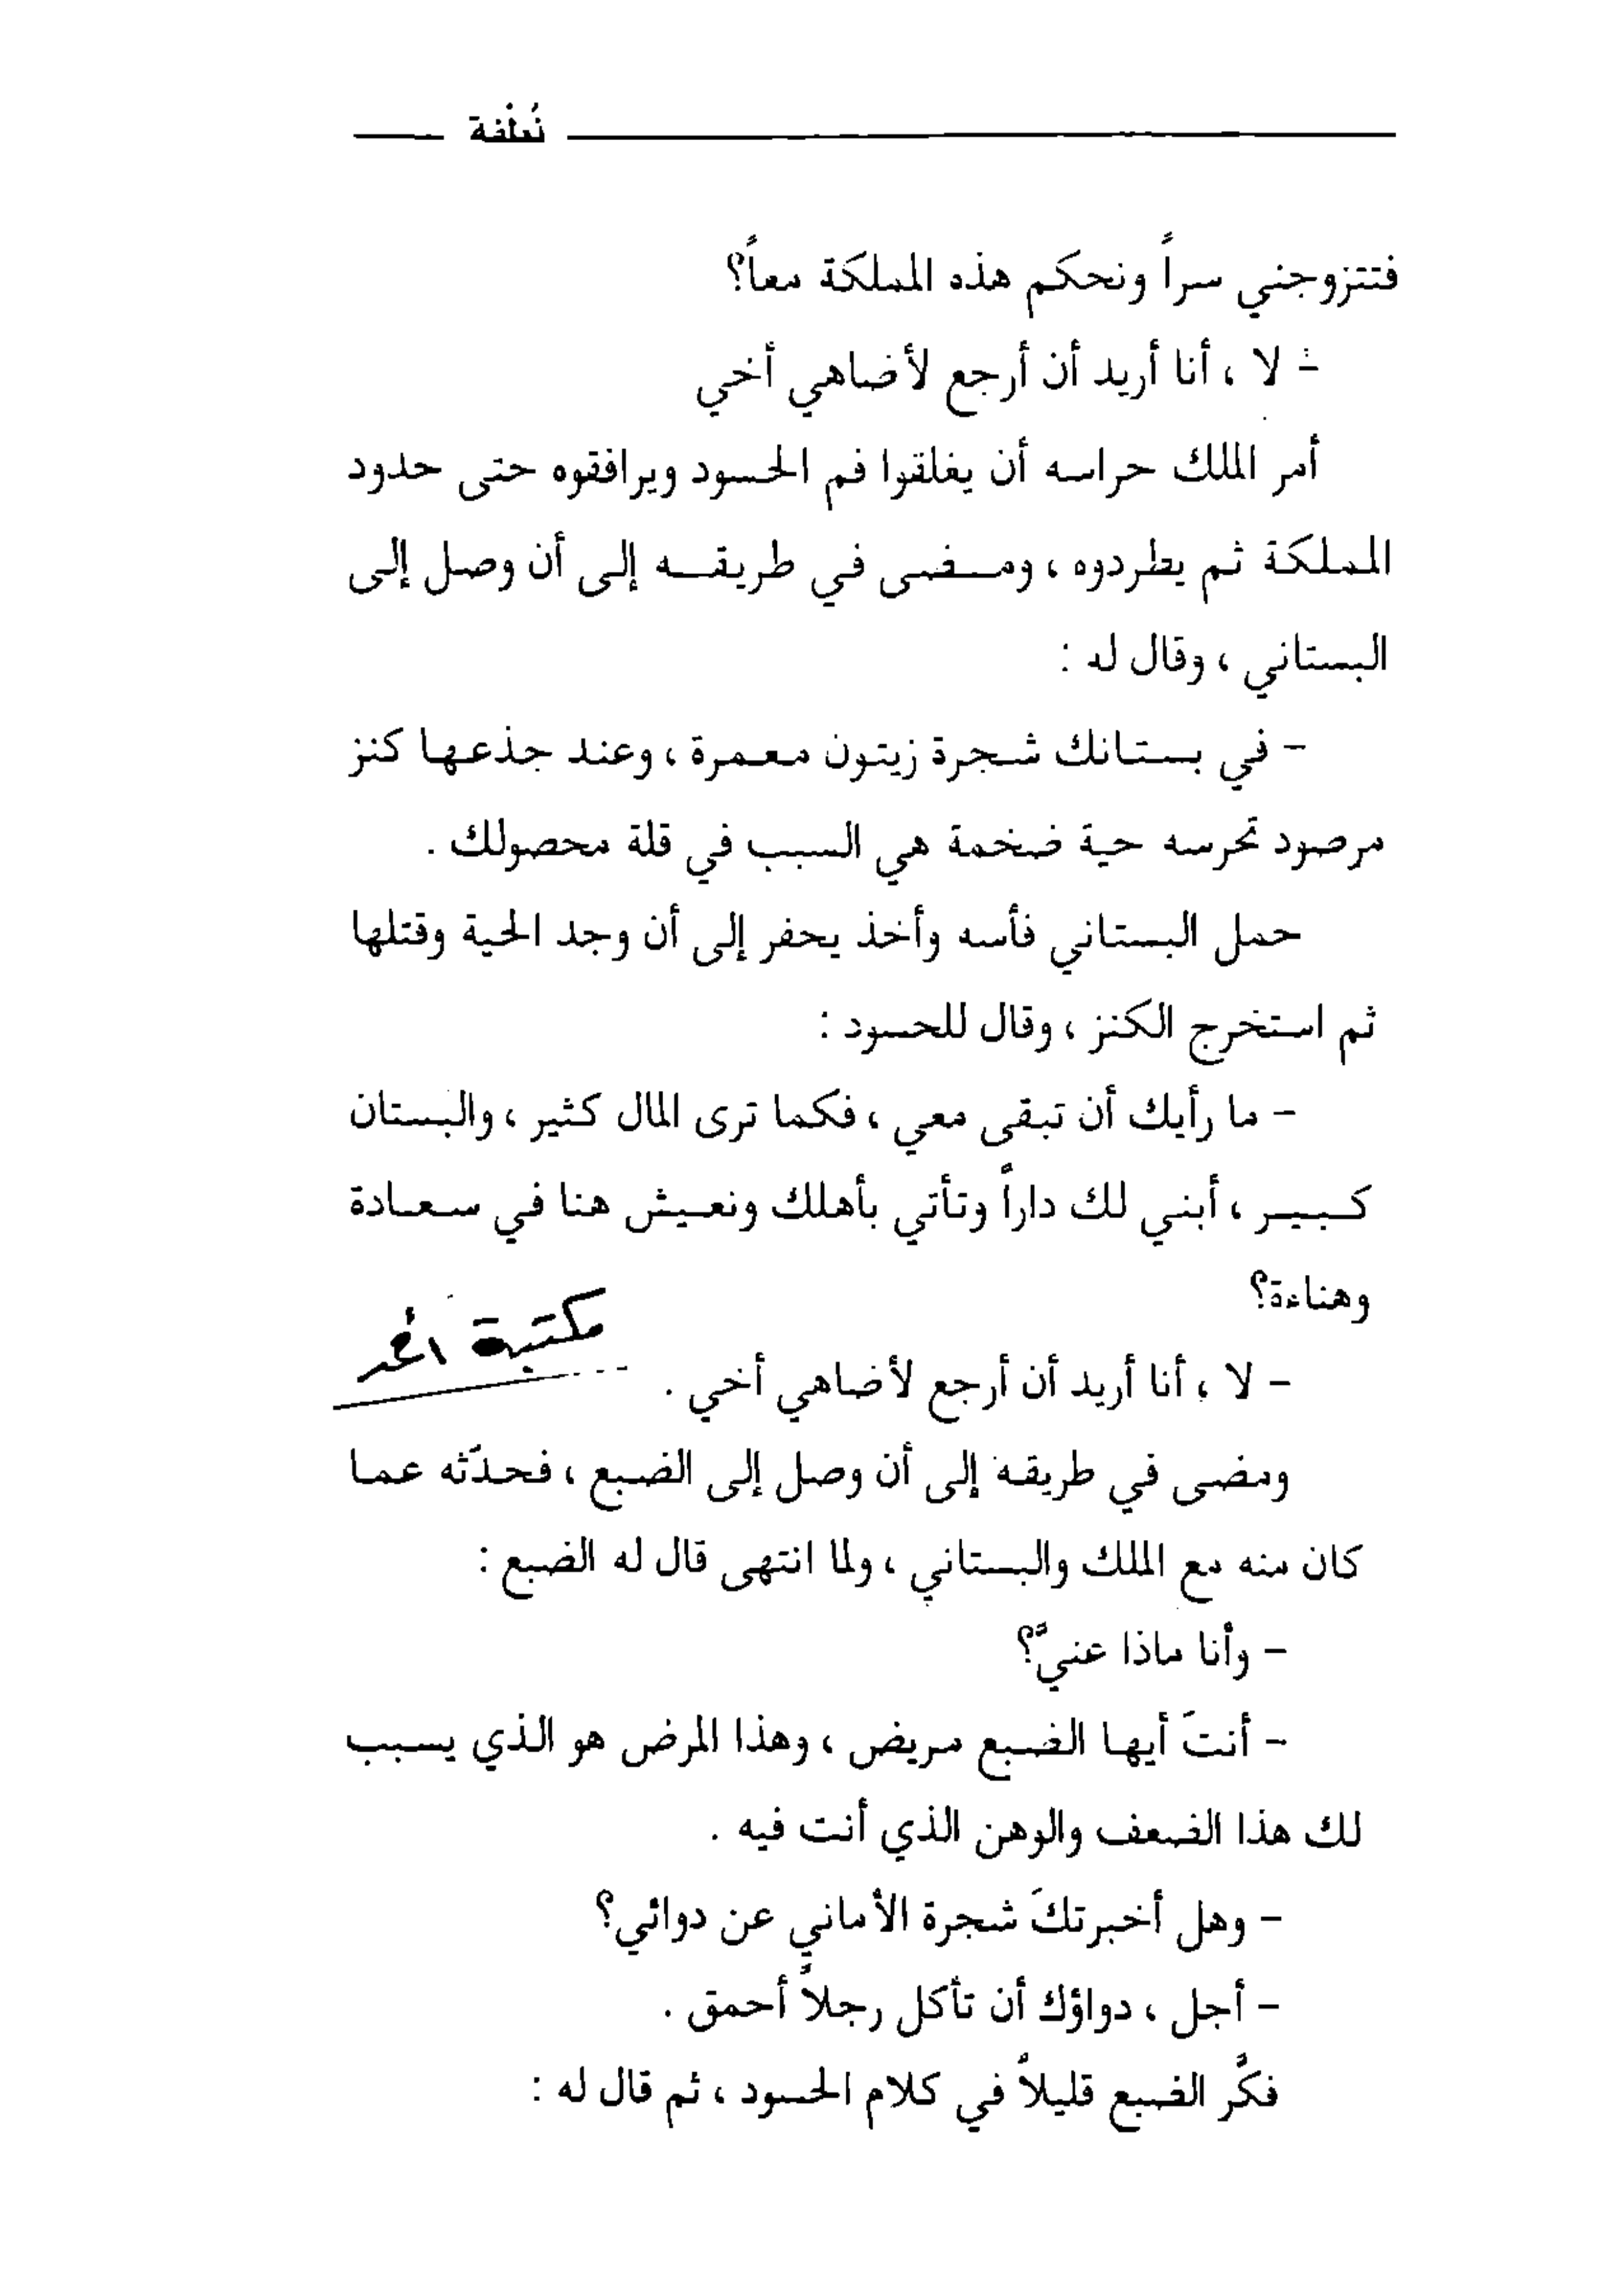 نُطْفة
فتتزوجني سراً ونحكم هذه المملكة معاً؟
- لا ، أنا أريد أن أرجع لأضاهي أخي
أمر الملك حراسه أن يغلقوا فم الحسود ويرافقوه حتى حدود
المملكة ثم يطردوه ، ومضى في طريقه إلى أن وصل إلى
البستاني ، وقال له :
- في بستانك شجرة زيتون معمرة ، وعند جذعها كنز
مرصود تحرسه حية ضخمة هي السبب في قلة محصولك .
حمل البستاني فأسه وأخذ يحفر إلى أن وجد الحية وقتلها
ثم استخرج الكنز ، وقال للحسود :
- ما رأيك أن تبقى معي ، فكما ترى المال كثير ، والبستان
كبير ، أبني لك داراً وتأتي بأهلك ونعيش هنا في سعادة
وهناءة؟
مكتبة أحمد
- لا ، أنا أريد أن أرجع لأضاهي أخي .
ومضى في طريقه إلى أن وصل إلى الضبع ، فحدّثه عما
كان منه مع الملك والبستاني ، ولما انتهى قال له الضبع :
- وأنا ماذا عنيّ؟
- أنتَ أيها الضبع مريض ، وهذا المرض هو الذي يسبب
لك هذا الضعف والوهن الذي أنت فيه .
- وهل أخبرتكَ شجرة الأماني عن دوائي؟
- أجل ، دواؤك أن تأكل رجلاً أحمق .
فكّر الضبع قليلاً في كلام الحسود ، ثم قال له :